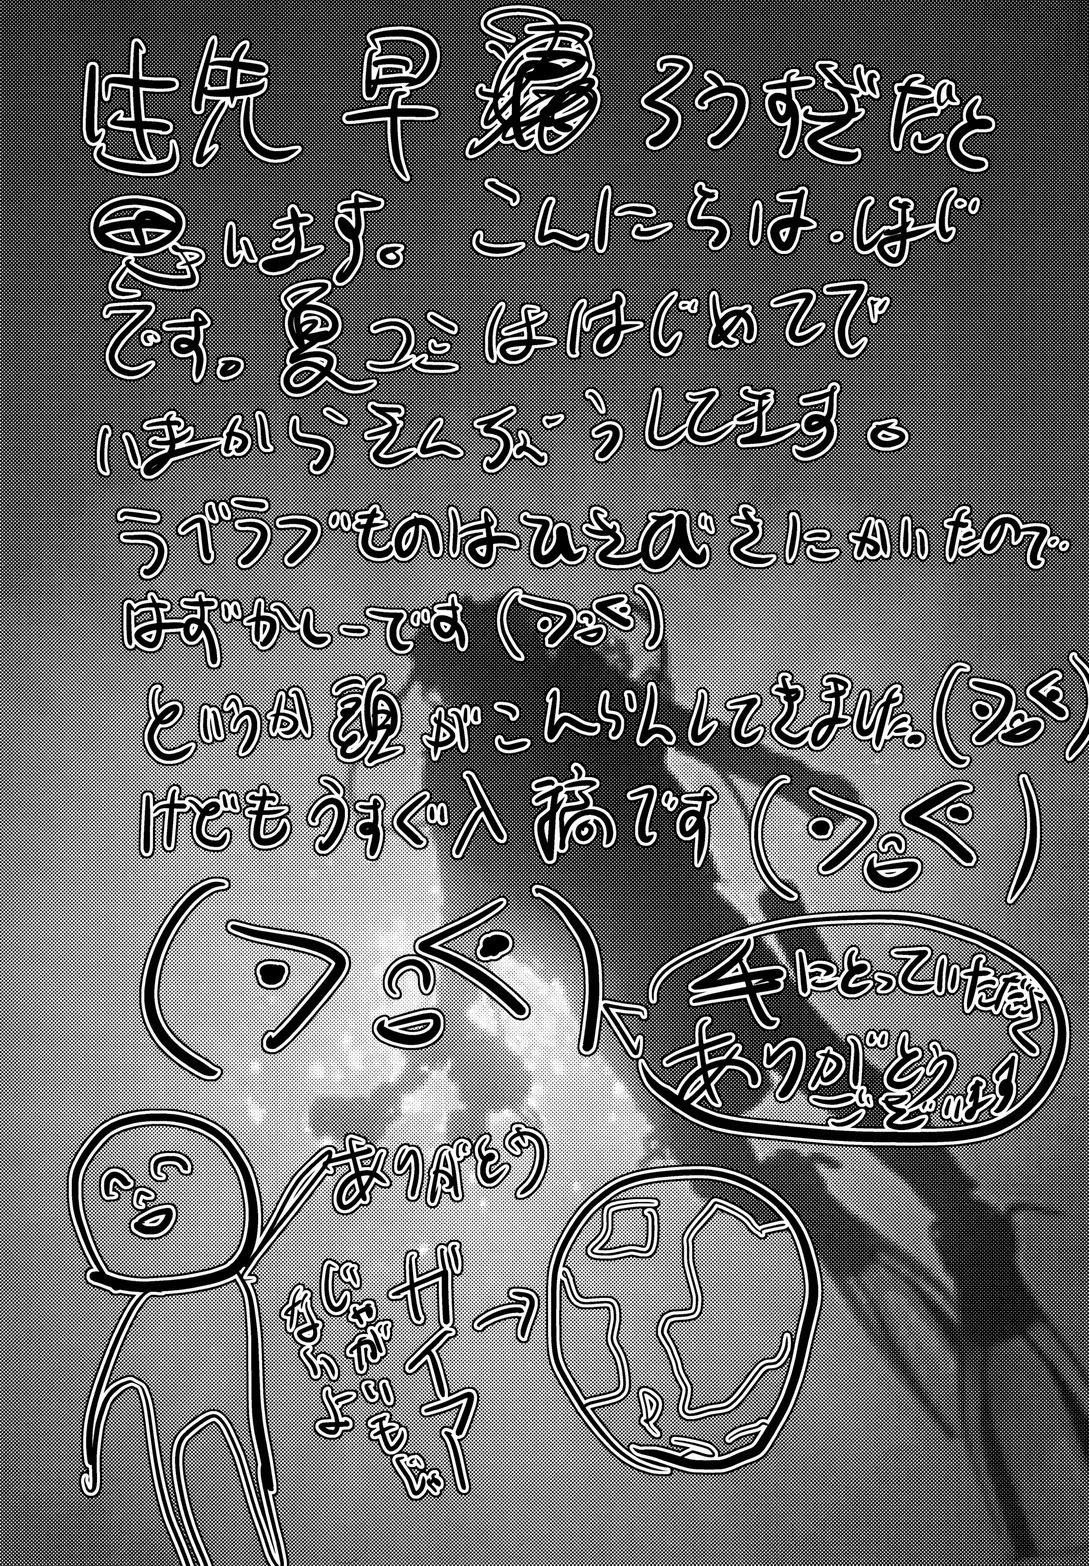 早 ろうすぎだと
思います。こんにちは.はじ
です。夏コミははじめてで
いまからぞんぶうしてます。
ラブラブものはひさびさにかいたので..
はずかしーです
というか頭がこんらんしてきました。
けどもうすぐ入稿です
手にとっていただく
ありがとう
ございます
ありがとう
ガイアー
じゃがいもじゃ
ないよ